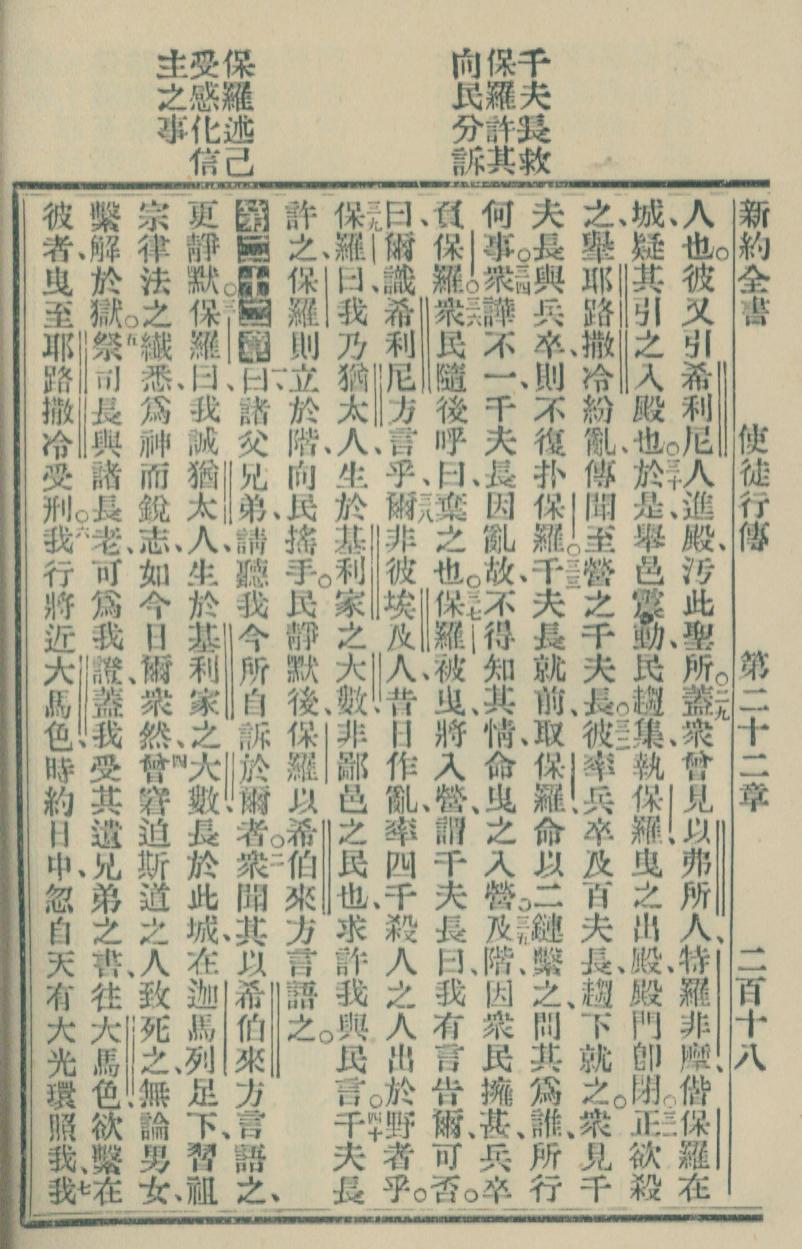 千夫長救
保羅許其
向民分訴
保羅述己
受感化信
主之事
新約全書 使徒行傳 第二十二章 二百十八
人也。彼又引希利尼人進殿、汚此聖所。二九蓋衆曾見以弗所人、特羅非摩、偕保羅在
城、疑其引之入殿也。三十於是、舉邑震動、民趨集、執保羅、曳之出殿、殿門卽閉。三一正欲殺
之、舉耶路撒冷紛亂、傳聞至營之千夫長。三二彼率兵卒及百夫長、趨下就之。衆見千
夫長與兵卒、則不復扑保羅。三三千夫長就前、取保羅、命以二鏈繫之、問其爲誰、所行
何事。三四衆譁不一、千夫長因亂故、不得知其情、命曳之入營。三五及階、因衆民擁甚、兵卒
負保羅。三六衆民隨後呼曰、棄之也。三七保羅被曳、將入營、謂千夫長曰、我有言告爾、可否。
曰、爾識希利尼方言乎、三八爾非彼埃及人、昔日作亂、率四千殺人之人、出於野者乎。
三九保羅曰、我乃猶太人、生於基利家之大數、非鄙邑之民也、求許我與民言。四十千夫長
許之、保羅則立於階、向民搖手。民靜默後、保羅以希伯來方言語之。
第二十二章 一曰、諸父兄弟、請聽我今所自訴於爾者。二衆聞其以希伯來方言語之、
更靜默。三保羅曰、我誠猶太人、生於基利家之大數、長於此城、在迦馬列足下、習祖
宗律法之纖悉、爲神而銳志、如今日爾衆然、四曾窘迫斯道之人致死之、無論男女、
繫解於獄。五祭司長與諸長老、可爲我證、蓋我受其遺兄弟之書、往大馬色、欲繫在
彼者、曳至耶路撒冷受刑。六我行將近大馬色時、約日中、忽自天有大光環照我、七我